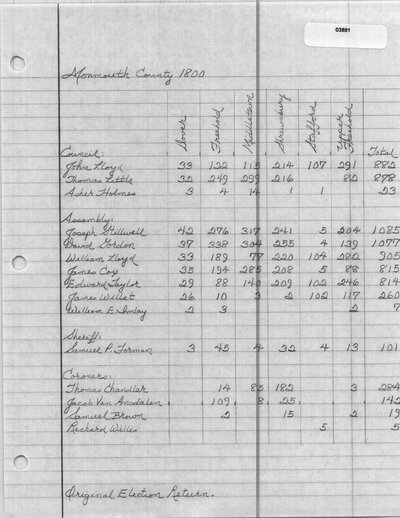 03881
Monmouth County 1800
Dover Freehold Middletown Shrewsbury Stafford Upper Freehold
Council: Total
John Lloyd 33 122 115 214 107 291 882
Thomas Little 32 249 299 216 82 878
Asher Holmes 3 4 14 1 1 23
Assembly:
Joseph Stillwell 42 276 317 241 5 204 1085
David Gordon 37 338 304 255 4 139 1077
William Lloyd 33 189 77 220 104 282 905
James Cox 35 194 285 208 5 88 815
Edward Taylor 29 88 140 209 102 246 814
James Willet 26 10 3 2 102 117 260
William E. Imlay 2 3 2 7
Sheriff:
Samuel P. Forman 3 45 4 32 4 13 101
Coroners:
Thomas Chandler 14 85 182 3 284
Jacob Van 109 8 25 142
Samuel Brown 2 15 2 19
Richard Willis 5 5
Original Election Return.